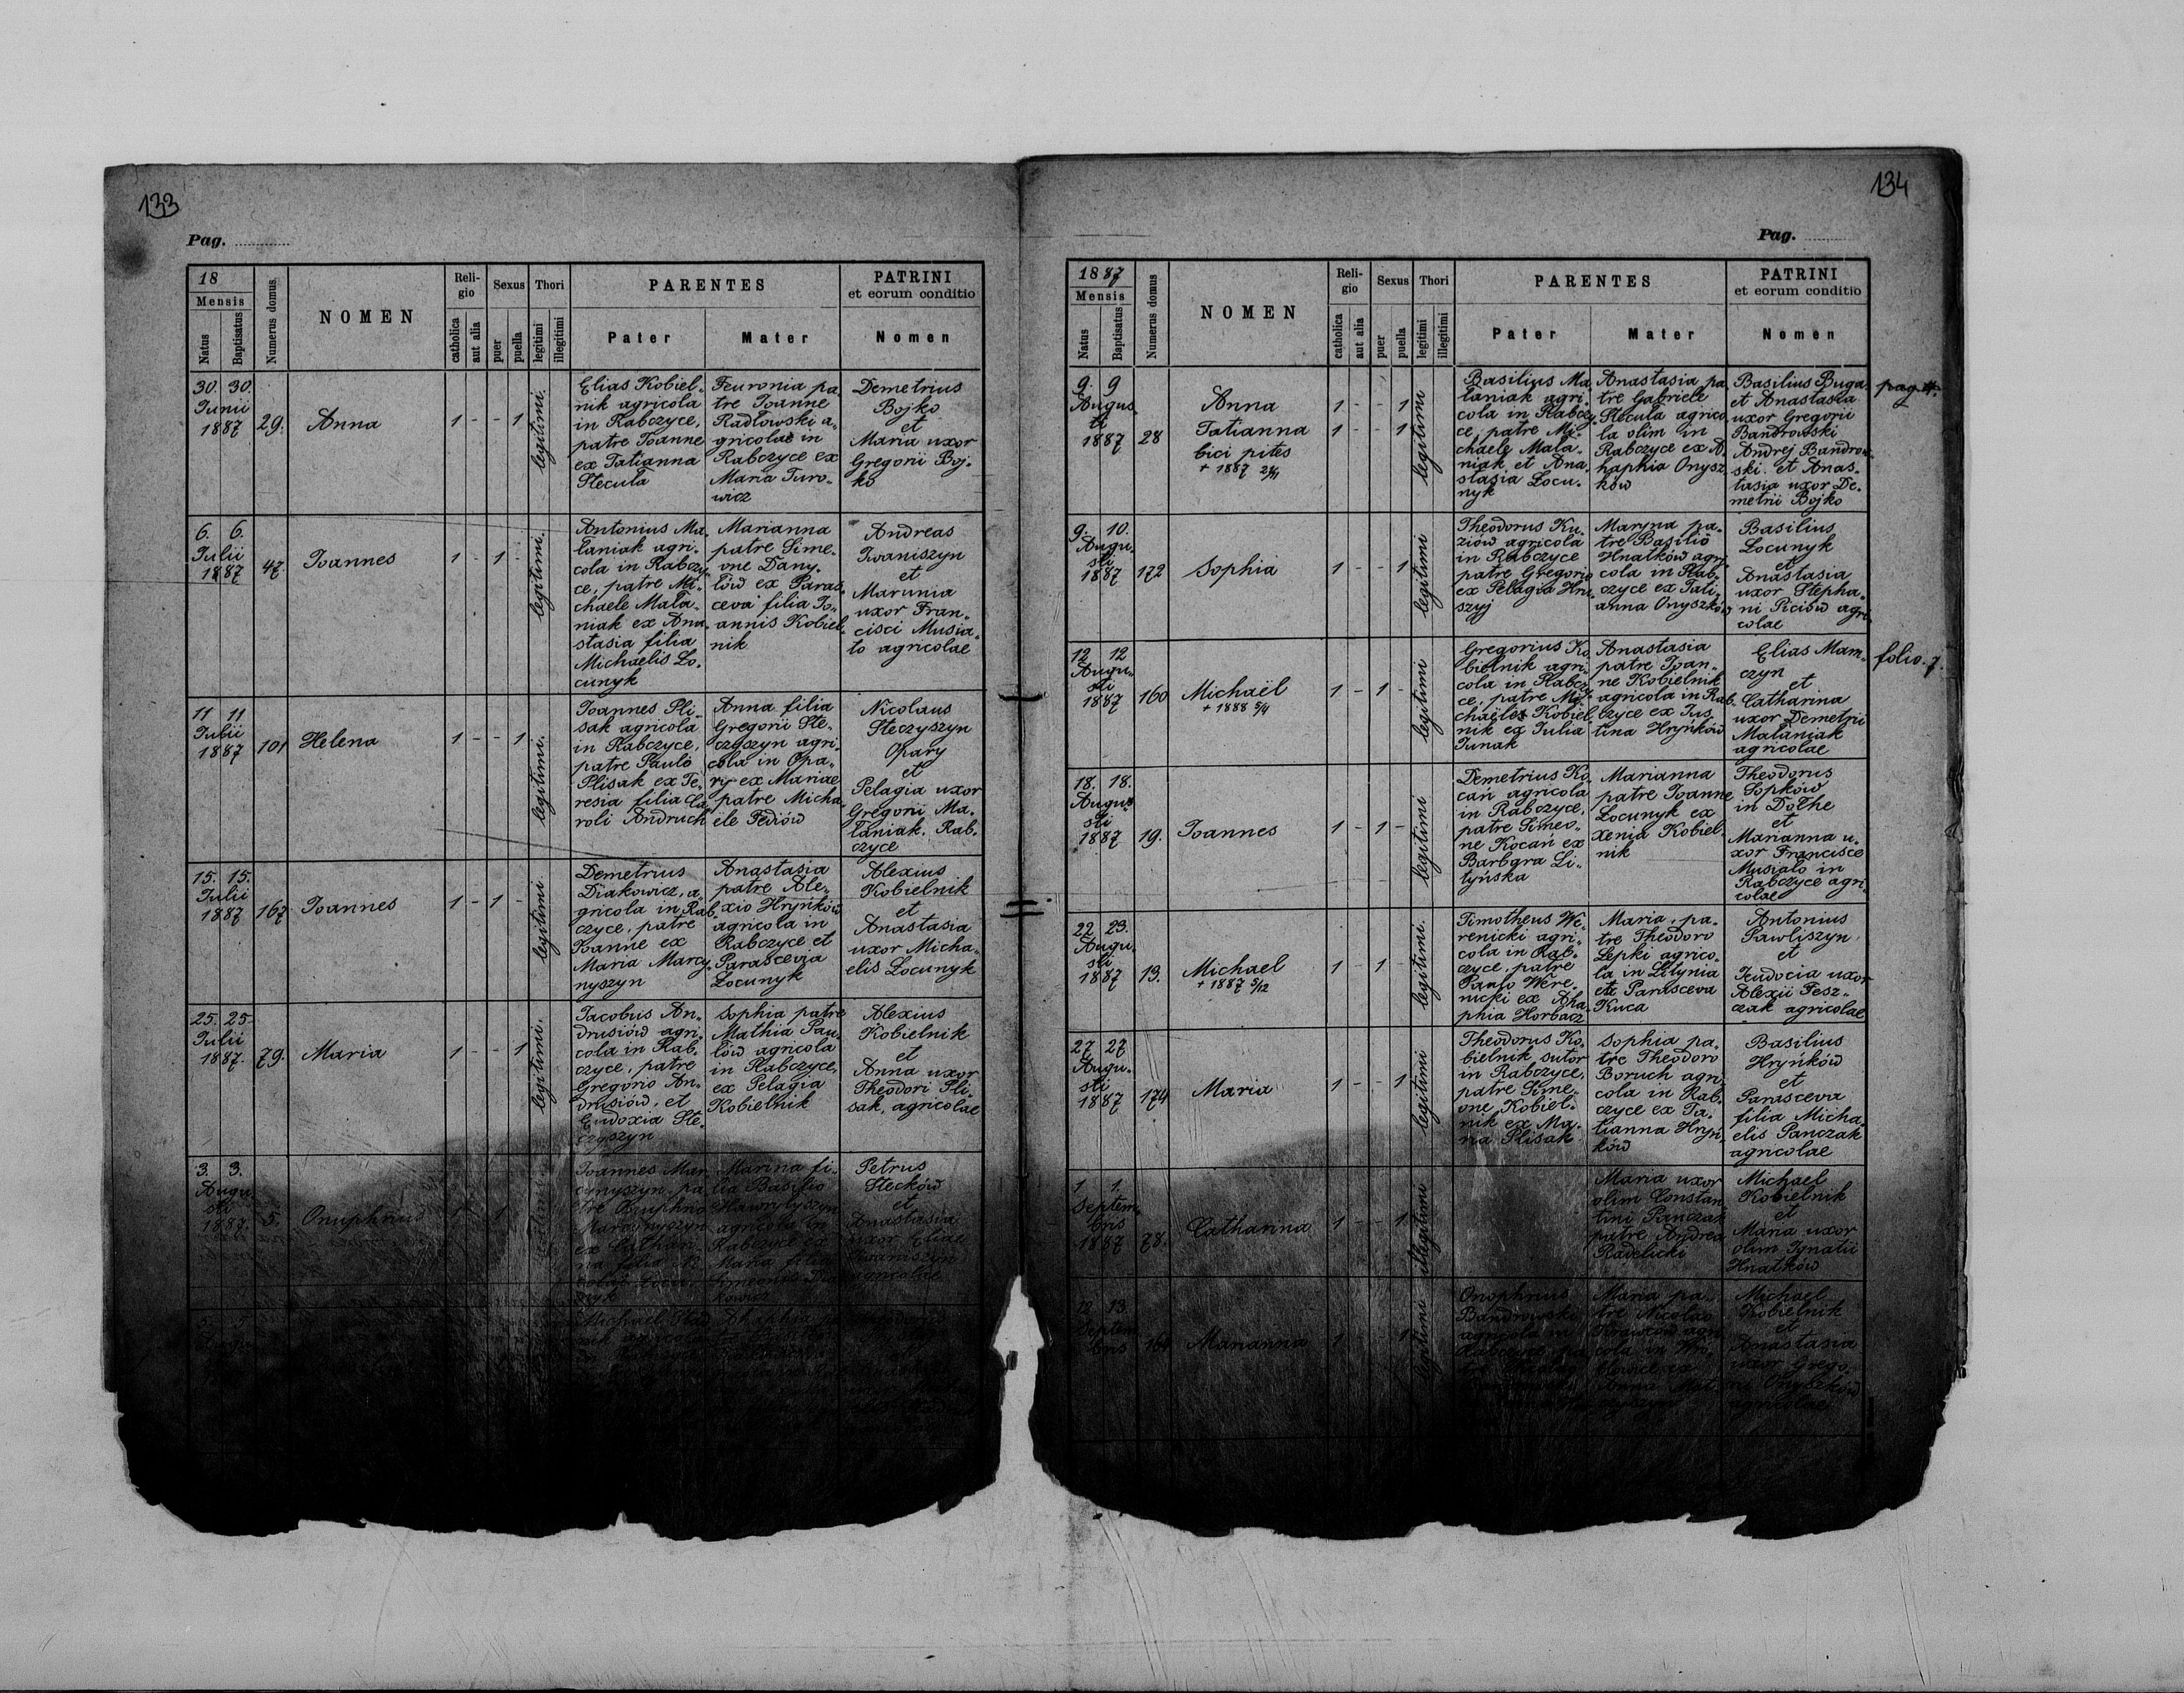 133
Pag.
18
Mensis
Natus
Baptisatus
Numerus domus
NOMEN
Reli-
gio
catholica
aut alia
Sexus
puer
puella
Thori
legitimi
illegitimi
PARENTES
Pater
Mater
PATRINI
et eorum conditio
Nomen
30. 30.
Junii
1887
29.
Anna
1 - - 1
legitimi.
Elias Kobiel-
nik agricola
in Rabczyce,
patre Joanne
ex Tatianna
Stecuła
Feuronia pa
tre Joanne
Radłowski a-
gricolae in
Rabczyce ex
Maria Turo-
wicz
Demetrius
Bojko
et
Maria uxor
Gregorii Boj-
ko
6. 6.
Julii
1887
47.
Joannes
1 - 1 -
legitimi.
Antonius Ma-
łaniak agri-
cola in Rabczy-
ce, patre Mi-
chaele Mała-
niak ex Ana-
stasia filia
Michaelis Lo-
cunyk
Marianna
patre Sime-
one Dany-
lów ex Paras-
ceva filia Jo-
annis Kobiel-
nik
Andreas
Iwaniszyn
et
Marunia
uxor Fran-
cisci Musia-
ło agricolae
11 11
Julii
1887
101
Helena
1 - - 1
legitimi.
Joannes Pli-
sak agricola
in Rabczyce,
patre Paulo
Plisak ex Te-
resia filia Ca-
roli Andruch
Anna filia
Gregorii Ste-
czyszyn agri-
cola in Opa-
ry ex Mariae
patre Micha-
ele Fediów
Nicolaus
Steczyszyn
Opary
et
Pelagia uxor
Gregorii Ma-
łaniak. Rab-
czyce
15. 15.
Julii
1887
167
Joannes
1 - 1 -
legitimi
Demetrius
Diakowicz, a
gricola in Rab-
czyce, patre
Joanne ex
Maria Marcy-
nyszyn
Anastasia
patre Ale-
xio Hryńków
agricola in
Rabczyce et
Parascevia
Locunyk
Alexius
Kobielnik
et
Anastasia
uxor Micha-
elis Locunyk
25. 25
Julii
1887.
79.
Maria
1 - - 1
legitimi.
Jacobus An-
drusiów agri-
cola in Rab-
czyce, patre
Gregorio An-
drusiów, et
Eudoxia Ste-
czyszyn
Sophia patre
Mathia Pau-
lów agricola
in Rabczyce,
ex Pelagia
Kobielnik
Alexius
Kobielnik
et
Anna uxor
Theodori Pli-
sak, agricolae
3. 3.
Augu-
sti
1887.
5.
Onuphrius
1 1
Joannes Mar
cynyszyn, pa
tre Onuphrio
Marcynyszyn
ex Cathari-
na filia
Marina fi-
lia Basilio
agricola in
Rabczyce ex
Maria filia
Simeonis Dia
kowicz
Petrus
Stecków
et
Anastasia
uxor Eliae
Iwaniszyn
agricolae
Michael
134
Pag.
1887
Mensis
Natus
Baptisatus
Numerus domus
NOMEN
Reli-
gio
catholica
aut alia
Sexus
puer
puella
Thori
legitimi
illegitimi
PARENTES
Pater
Mater
PATRINI
et eorum conditio
Nomen
9. 9
Augus-
ti
1887
28
Anna
Tatianna
bici pites
+ 1887 24/11
1 - - 1
1 - - 1
legitimi
Basilius Ma-
łaniak agri-
cola in Rabczy-
ce, patre Mi-
chaele Mała-
niak et Ana-
stasia Locu-
nyk
Anastasia pa
tre Gabriele
Stecuła agrico
la olim in
Rabczyce ex A-
haphia Onysz-
ków
Basilius Buga-
et Anastasia
uxor Gregorii
Bandrowski
Andrej Bandrow-
ski et Anas-
tasia uxor De-
metrii Bojko
pag 4.
9. 10.
Augu-
sti
1887
172
Sophia
1 - - 1
legitimi
Theodorus Ku-
ziów agricola
in Rabczyce
patre Gregorio
ex Pelagia Hry-
szyj
Maryna pa-
tre Basilio
Hnatków agri
cola in Rab-
czyce ex Tati-
anna Onyszków
Basilius
Locunyk
et
Anastasia
uxor Stepha-
ni Piciów agri-
colae
12 12
Augu-
sti
1887
160
Michaël
+ 1888 5/4
1 - 1 -
legitimi
Gregorius Ko-
bielnik agri-
cola in Rabczy
ce, patre Mi-
chaeles Kobiel-
nik ex Julia
Junak
Anastasia
patre Joan-
ne Kobielnik
agricola in Rab-
czyce ex Jus-
tina Hryńków
Elias Mam-
czyn
et
Catharina
uxor Demetrii
Małaniak
agricolae
folio 7.
18. 18.
Augu-
sti
1887
19.
Joannes
1 - 1 -
legitimi
Demetrius Ko-
cań agricola
in Rabczyce,
patre Simeo-
ne Kocań ex
Barbara Li-
tyńska
Marianna
patre Joanne
Locunyk ex
xenia Kobiel-
nik
Theodorus
Sopków
in Dołhe
et
Marianna u-
xor Francisce
Musiało in
Rabczyce agri-
colae
22 23.
Augu-
sti
1887
13.
Michael
+ 1887 5/12
1 - 1 -
legitimi.
Timotheus We-
renicki agri-
cola in Rab-
czyce, patre
Paulo Were-
nicki ex Aha-
phia Horbacz
Maria, pa-
tre Theodoro
Lepki agrico-
la in Litynia
ex Parasceva
Kuca
Antonius
Pawliszyn
et
Jeudocia uxor
Alexii Fesz-
czak agricolae
27 27
Augu-
sti
1887
174
Maria
1 - - 1
legitimi
Theodorus Ko-
bielnik sutor
in Rabczyce,
patre Sime-
one Kobiel-
nik ex Ma-
ria Plisak
Sophia pa-
tre Theodoro
Boruch agri-
cola in Rab-
czyce ex Ta-
tianna Hryń-
ków
Basilius
Hryńków
et
Parasceva
filia Micha-
elis Panczak
agricolae
1 1.
Septem-
bris
1887
78.
Catharina
1 - - 1
illegitimi
Maria uxor
olim Constan-
tini Panczak
patre Andrea
Radelicki
Michael
Kobielnik
et
Maria uxor
olim Ignatii
Hnatków
12 13.
Septem-
bris
161
Marianna
1 1
legitimi
Onophrius
Bandrowski
agricola in
Rabczyce pa
Maria pa-
tre Nicolao
cola in
Anna
Michael
Kobielnik
et
Anastasia
uxor Grego-
rii Onyszków
agricolae